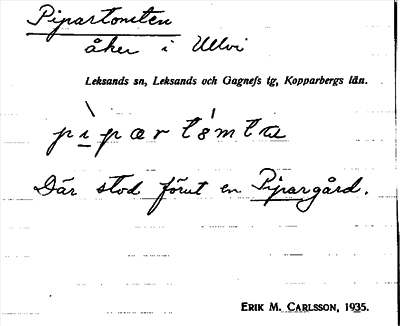 Pipartomten
åker i Ullvi
Leksands sn, Leksands och Gagnefs tg, Kopparbergs län.
pìpær tómta
Där stod förut en Pipargård.
ERIK M. CARLSSON, 1935.